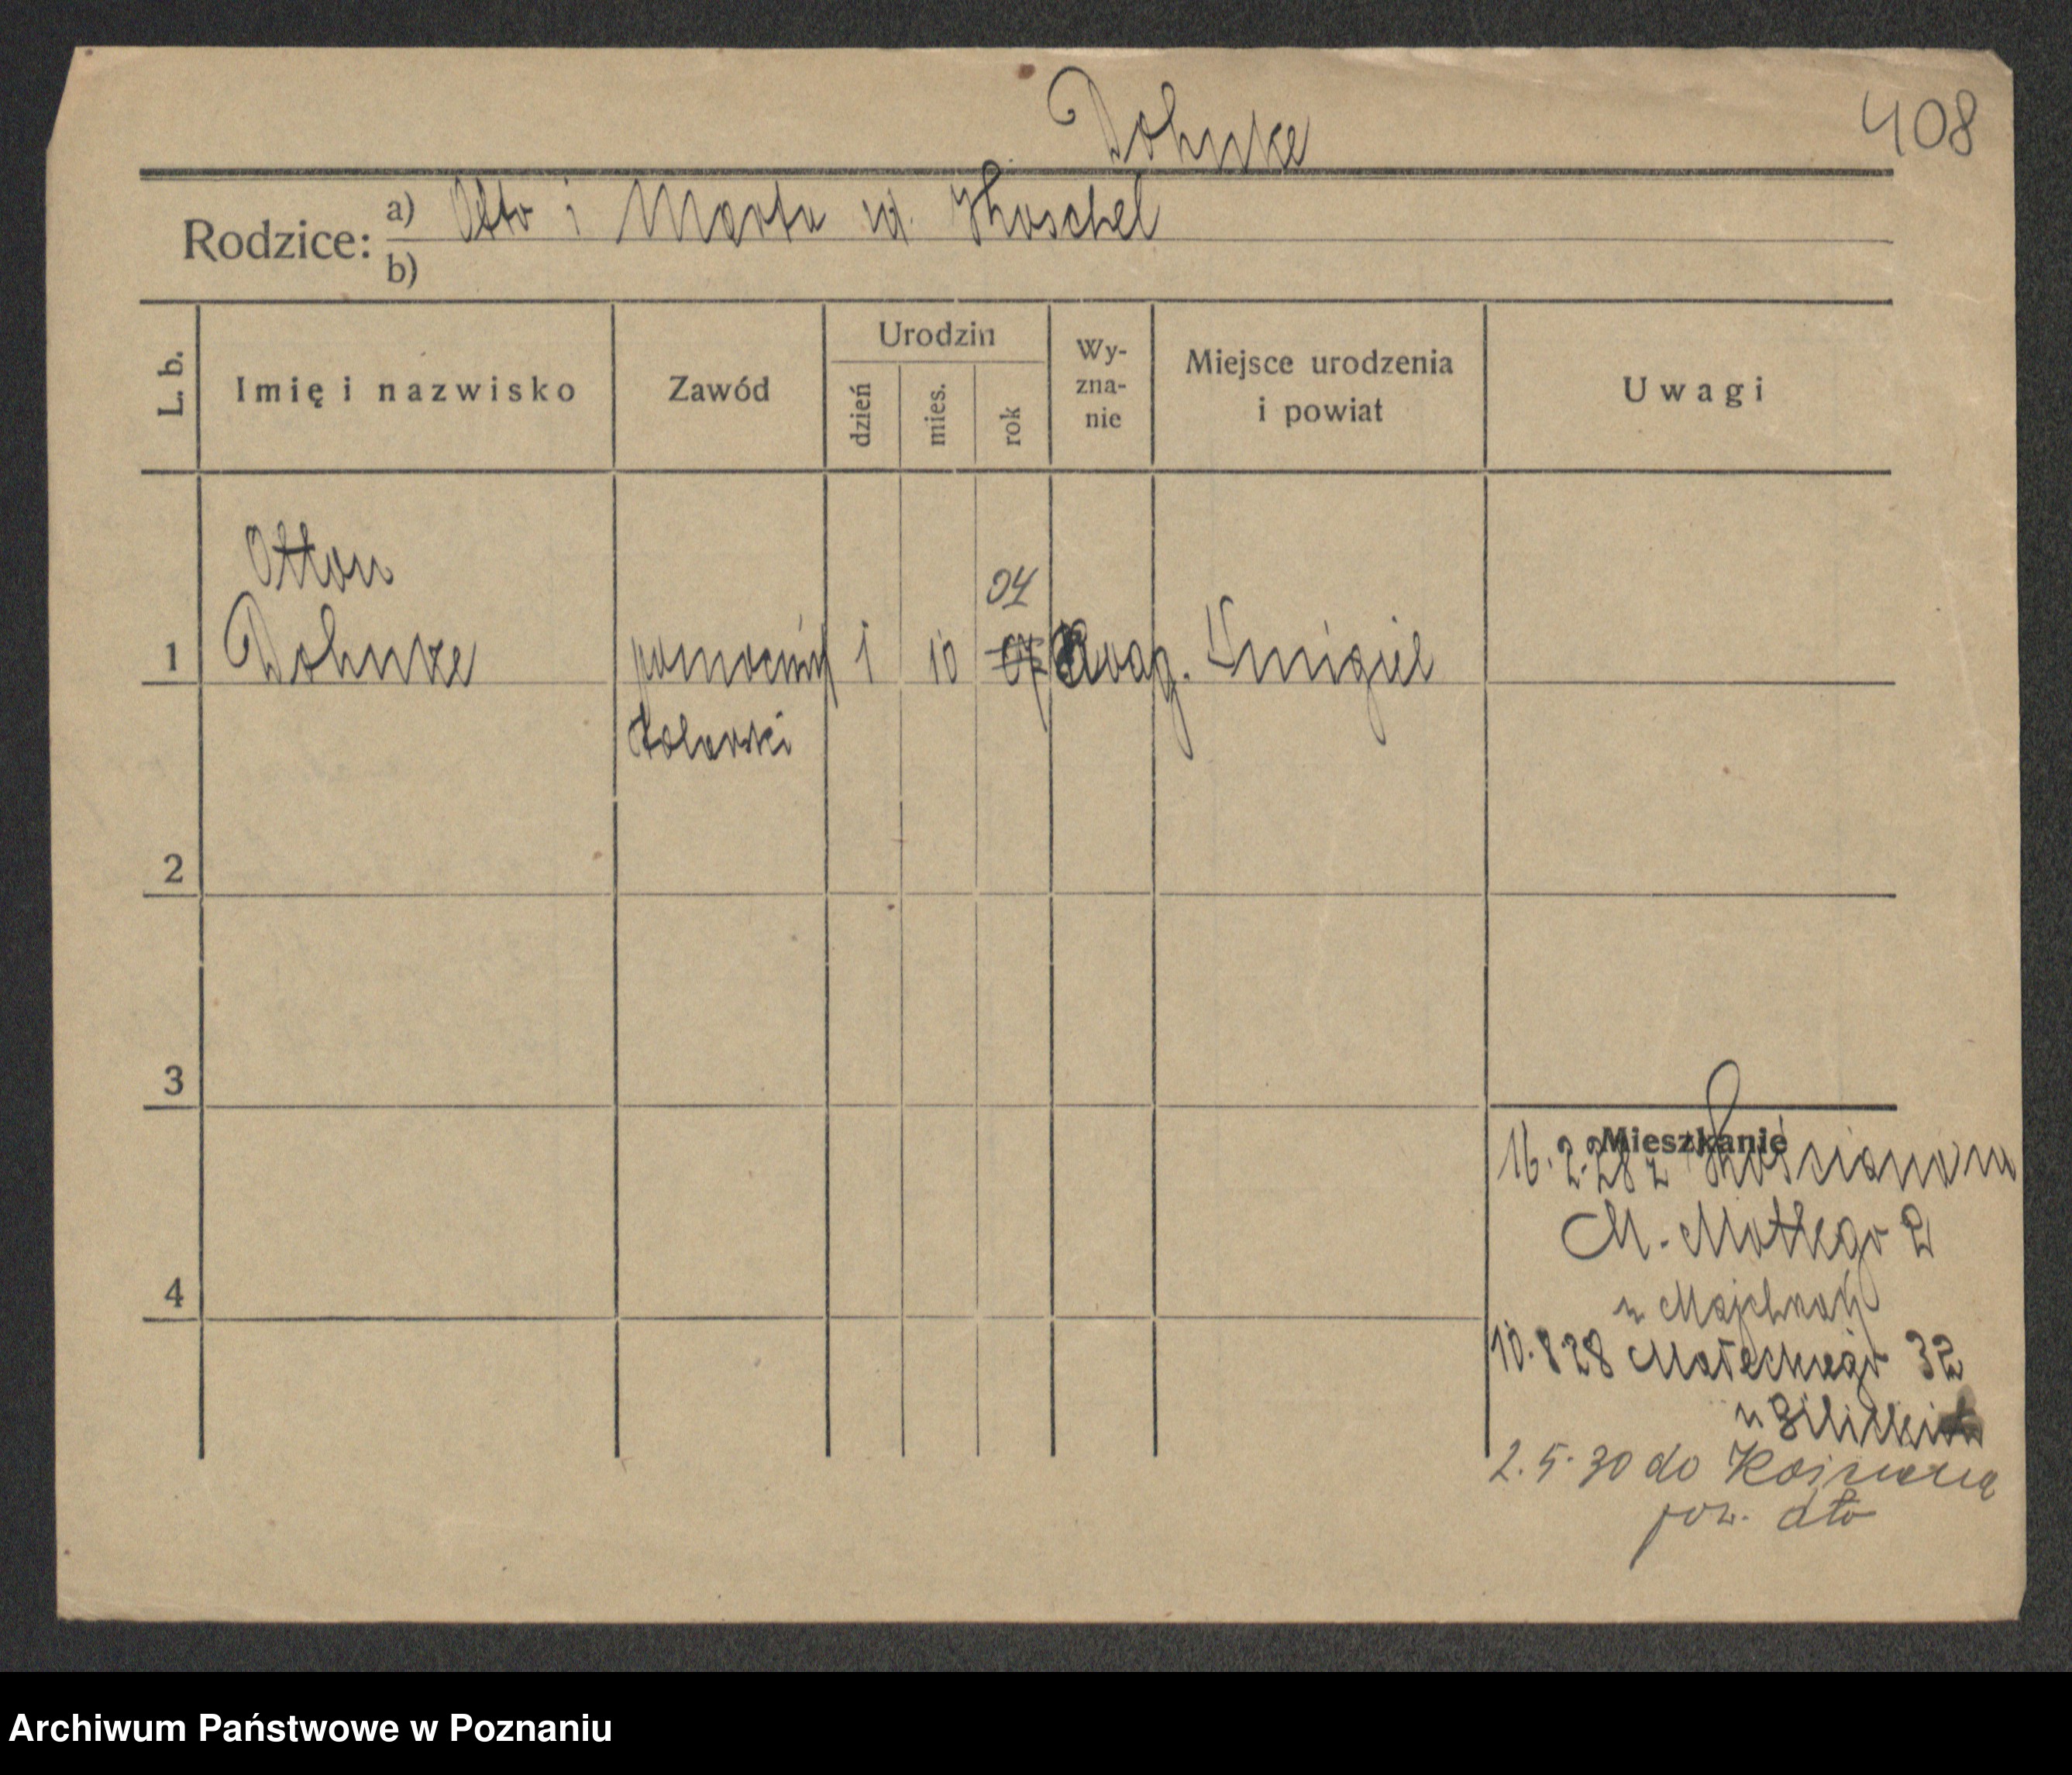 Dohnke
408
Rodzice: a) Otto i Marta ur. Khoschel
b)
L. b.
Imię i nazwisko
Zawód
Urodzin
dzień
mies.
rok
Wy-
zna-
nie
Miejsce urodzenia
i powiat
Uwagi
Otton
04
1 Dohnke pomocnik 1 10 07 Ewag. Śmigiel
stolarski
2
3
4
Mieszkanie
16.2.28 z Kościana na
M. Mottego 2
u
10.8.28 Małeckiego 32
u
2.5.30 do
pow. dto
Archiwum Państwowe w Poznaniu